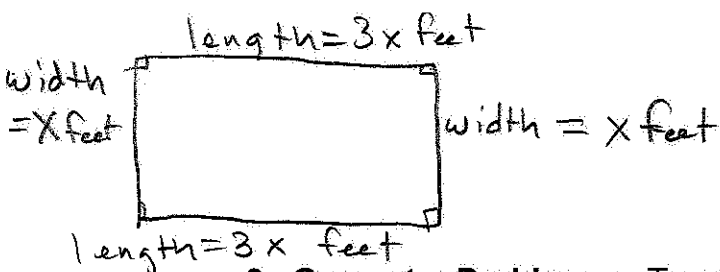 length=3x feet
width
=X feet
width = x feet
length=3x feet